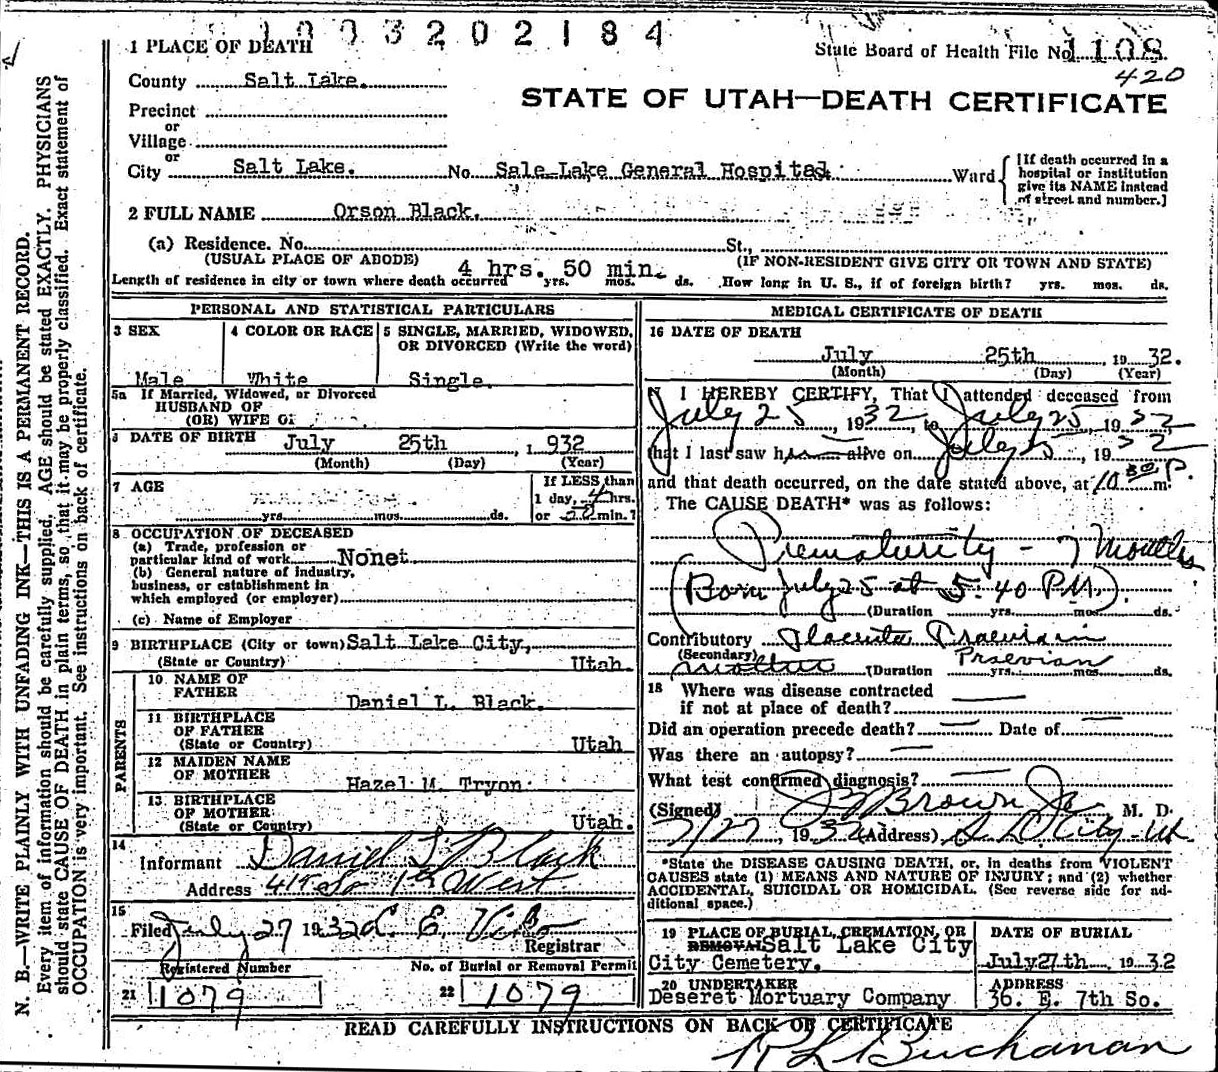 1003202184
1 PLACE OF DEATH
State Board of Health File No. 1108
County Salt Lake.
420
STATE OF UTAH—DEATH CERTIFICATE
Precinct
or
Village
or
City Salt Lake. No. Sale Lake General Hospital. Ward
[If death occurred in a hospital or institution give its NAME instead of street and number.]
2 FULL NAME Orson Black.
(a) Residence. No. St.,
(USUAL PLACE OF ABODE) (IF NON-RESIDENT GIVE CITY OR TOWN AND STATE)
4 hrs. 50 min.
Length of residence in city or town where death occurred yrs. mos. ds. How long in U. S., if of foreign birth? yrs. mos. ds.
PERSONAL AND STATISTICAL PARTICULARS
3 SEX 4 COLOR OR RACE 5 SINGLE, MARRIED, WIDOWED,
OR DIVORCED (Write the word)
Male White Single.
5a If Married, Widowed, or Divorced
HUSBAND OF
(OR) WIFE OF
6 DATE OF BIRTH July 25th, 1932
(Month) (Day) (Year)
7 AGE
If LESS than
1 day, 4 hrs.
yrs. mos. ds. or min.?
8 OCCUPATION OF DECEASED
(a) Trade, profession or
particular kind of work Nonet
(b) General nature of industry,
business, or establishment in
which employed (or employer)
(c) Name of Employer
9 BIRTHPLACE (City or town) Salt Lake City,
(State or Country) Utah.
PARENTS
10 NAME OF
FATHER Daniel L. Black.
11 BIRTHPLACE
OF FATHER
(State or Country) Utah
12 MAIDEN NAME
OF MOTHER Hazel M. Tryon
13 BIRTHPLACE
OF MOTHER
(State or Country) Utah.
14
Informant Daniel L Black
Address 419 So 1st West
15
Filed July 27 1932 C. E.
Registrar
Registered Number No. of Burial or Removal Permit
21 1079 22 1079
MEDICAL CERTIFICATE OF DEATH
16 DATE OF DEATH
July 25th, 1932.
(Month) (Day) (Year)
I HEREBY CERTIFY, That I attended deceased from
July 25, 1932, to July 25, 1932
that I last saw h alive on July 25, 1932
and that death occurred, on the date stated above, at 10 30 P. m.
The CAUSE DEATH* was as follows:
Prematurity - 7 Months
(Born July 25 at 5:40 P.M.).
(Duration yrs. mos. ds.
Contributory Placenta Praevia in
(Secondary) Praevian
mother (Duration yrs. mos. ds.
18 Where was disease contracted
if not at place of death?
Did an operation precede death? Date of
Was there an autopsy?
What test confirmed diagnosis?
(Signed) Brown Jr M. D.
7/27, 1932 (Address) S L City - Ut
*State the DISEASE CAUSING DEATH, or, in deaths from VIOLENT
CAUSES state (1) MEANS AND NATURE OF INJURY; and (2) whether
ACCIDENTAL, SUICIDAL OR HOMICIDAL. (See reverse side for ad-
ditional space.)
19 PLACE OF BURIAL, CREMATION, OR DATE OF BURIAL
REMOVAL Salt Lake City
City Cemetery. July 27th, 1932
20 UNDERTAKER ADDRESS
Deseret Mortuary Company 36. E. 7th So.
READ CAREFULLY INSTRUCTIONS ON BACK OF CERTIFICATE
R L Buchanan
N. B.—WRITE PLAINLY WITH UNFADING INK—THIS IS A PERMANENT RECORD.
Every item of information should be carefully supplied. AGE should be stated EXACTLY. PHYSICIANS
should state CAUSE OF DEATH in plain terms, so that it may be properly classified. Exact statement of
OCCUPATION is very important. See instructions on back of certificate.